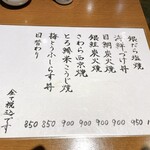 銀だら塩焼 950
海鮮づけ丼 900
目鯛炭火焼 900
銀鮭炭火焼 900
さわら西京焼 900
とろ鯵米こうじ焼 900
梅とろしらす丼 850
日替わり 850
全て税込です